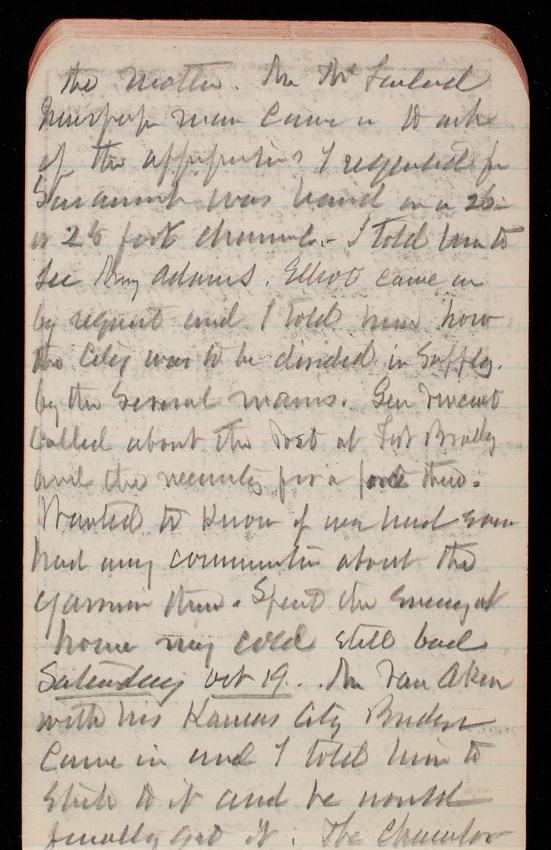 the matter. Mr
Newspaper man came in to ask
if the appropriations I requested for
Savannah was based on a 26-
or 28 foot channel. I told him to
see Adams. Elliot came in
by request and I told him how
the City was to be divided in Supply.
by the Several mains. Gen Vincent
Called about the Post at Fort Brady
and the necessity for a there.
Wanted to Know if we had ever
had any communication about the
garrison there. Spent the evening at
home my cold still bad
Saturday Oct 19. Mr Van Aken
with his Kansas City Bridge
Came in and I told him to
stick to it and he would
finally get it. The